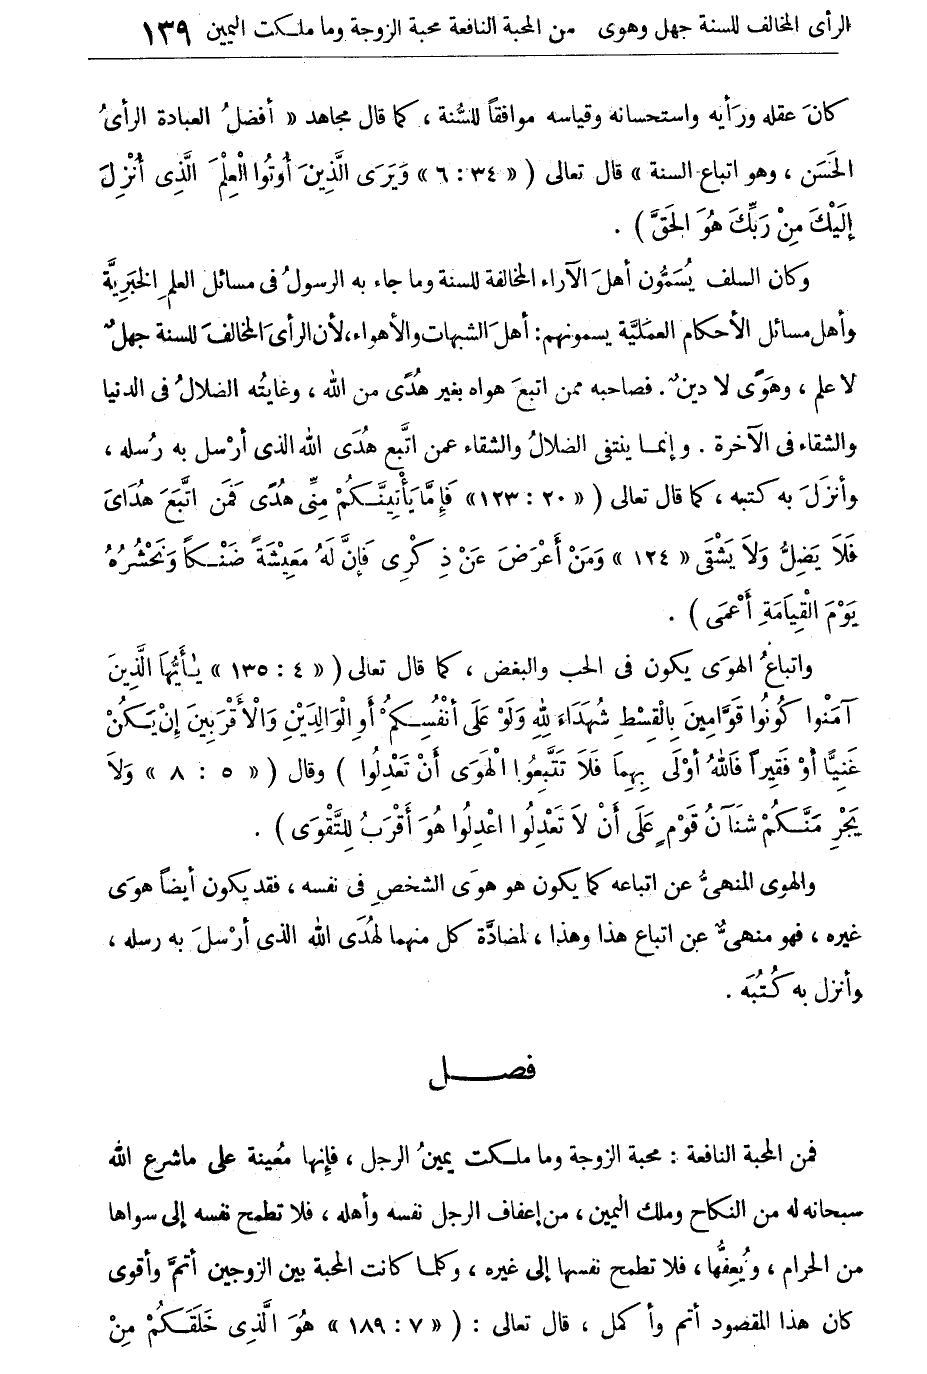 الرأى المخالف للسنة جهل وهوى من المحبة النافعة محبة الزوجة وما ملكت اليمين ١٣٩
كانَ عقله ورَأيه واستحسانه وقياسه موافقاً للسُّنة ، كما قال مجاهد « أفضلُ العبادة الرأىُ
الحَسَن ، وهو اتباع السنة » قال تعالى ( « ٣٤ : ٦ » وَيَرَى الَّذِينَ أُوتُوا الْعِلْمَ الَّذِى أُنْزِلَ
إِلَيْكَ مِنْ رَبِّكَ هُوَ الحَقَّ ) .
وكان السلف يُسَمُّون أهلَ الآراء المخالفة للسنة وما جاء به الرسولُ فى مسائل العلمِ الخبَرِيَّة
وأهل مسائل الأحكام العمَليَّة يسمونهم : أهلَ الشبهات والأهواء ، لأن الرأىَ المخالفَ للسنة جهلٌ
لا علم ، وهَوًى لا دينٌ . فصاحبه ممن اتبعَ هواه بغير هُدًى من الله ، وغايتُه الضلالُ فى الدنيا
والشقاء فى الآخرة . وإنما ينتفى الضلالُ والشقاء عمن اتَّبع هُدَى الله الذى أرْسل به رُسله ،
وأنزَلَ به كتبه ، كما قال تعالى ( « ٢٠ : ١٢٣ » فَإِمَّا يَأْتِيَنَّكُمْ مِنِّى هُدًى فَمَن اتَّبَعَ هُدَاىَ
فَلاَ يَضِلُّ وَلاَ يَشْقَى « ١٢٤ » وَمَنْ أَعْرَضَ عَنْ ذِكْرِى فَإِنَّ لَهُ مَعِيْشَةً ضَنْكاً وَنَحْشُرُهُ
يَوْمَ الْقِيَامَةِ أَعْمَى ) .
واتباعُ الهوَى يكون فى الحب والبغض ، كما قال تعالى ( « ٤ : ١٣٥ » يٰأَيُّهَا الَّذِينَ
آمَنُوا كُونُوا قَوَّامِينَ بِالْقِسْطِ شُهَدَاءَ لِلهِ وَلَوْ عَلَى أَنْفُسِكمْ أَوِ الْوَالِدَيْنِ وَالْأَقْرَبِينَ إِنْ يَكُنْ
غَنِيًّا أَوْ فَقِيراً فَاللهُ أَوْلَى بِهِمَا فَلَا تَتَّبِعُوا الْهَوَى أَنْ تَعْدِلُوا ) وقال ( « ٥ : ٨ » وَلاَ
يَجْرِ مَنَّكُمْ شَنَآنُ قَوْمٍ عَلَى أَنْ لاَ تَعْدِلُوا اعْدِلُوا هُوَ أَقْرَبُ لِلتَّقْوَى ) .
والهوى المنهىُّ عن اتباعه كما يكون هو هوَى الشخصِ فى نفسه ، فقد يكون أيضاً هوَى
غيره ، فهو منهىٌّ عن اتباع هذا وهذا ، لمضادَّة كل منهما لهُدَى الله الذى أرْسلَ به رسله ،
وأنزل به كُتُبَه .
فصل
فمن المحبة النافعة : محبة الزوجة وما ملكت يمينُ الرجل ، فإنها مُعينة على ماشرع الله
سبحانه له من النكاح وملك اليمين ، من إعفاف الرجل نفسه وأهله ، فلا تطمح نفسه إلى سواها
من الحرام ، ويُعِفُّها ، فلا تطمح نفسها إلى غيره ، وكلما كانت المحبة بين الزوجين أتمَّ وأقوى
كان هذا المقصود أتم وأكمل ، قال تعالى : ( « ٧ : ١٨٩ » هُوَ الَّذِى خَلَقَكُمْ مِنْ